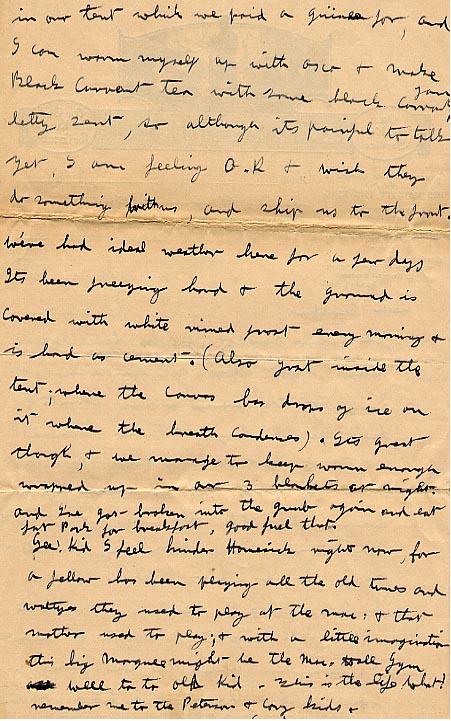 in our tent which we paid a guinea for, and
I can warm myself up with oxo & make
Black Currant tea with some black Currant Jam
letty sent, so although its painful to talk
yet, I am feeling O.K & wish they
do something with us, and ship us to the front.
We've had ideal weather here for a few days
Its been freezing hard & the ground is
Covered with white rimed frost every morning &
is hard as cement. (Also frost inside the
tent; where the canvas has drops of ice on
it where the breath condenses). Its great
though, & we manage to keep warm enough
wrapped up in our 3 blankets at night.
and Ive got broken into the grub again and eat
fat Pork for breakfast, good fuel that.
Gee! Kid I feel kinder Homesick right now, for
a fellow has been playing all the old tunes and
waltzes they used to play at the mac: & that
mother used to play; & with a little imagination
this big Marquee might be the Mac. Hall Gym
well to to old Kid. This is the life what!
remember me to the Petersons & Cory kids &